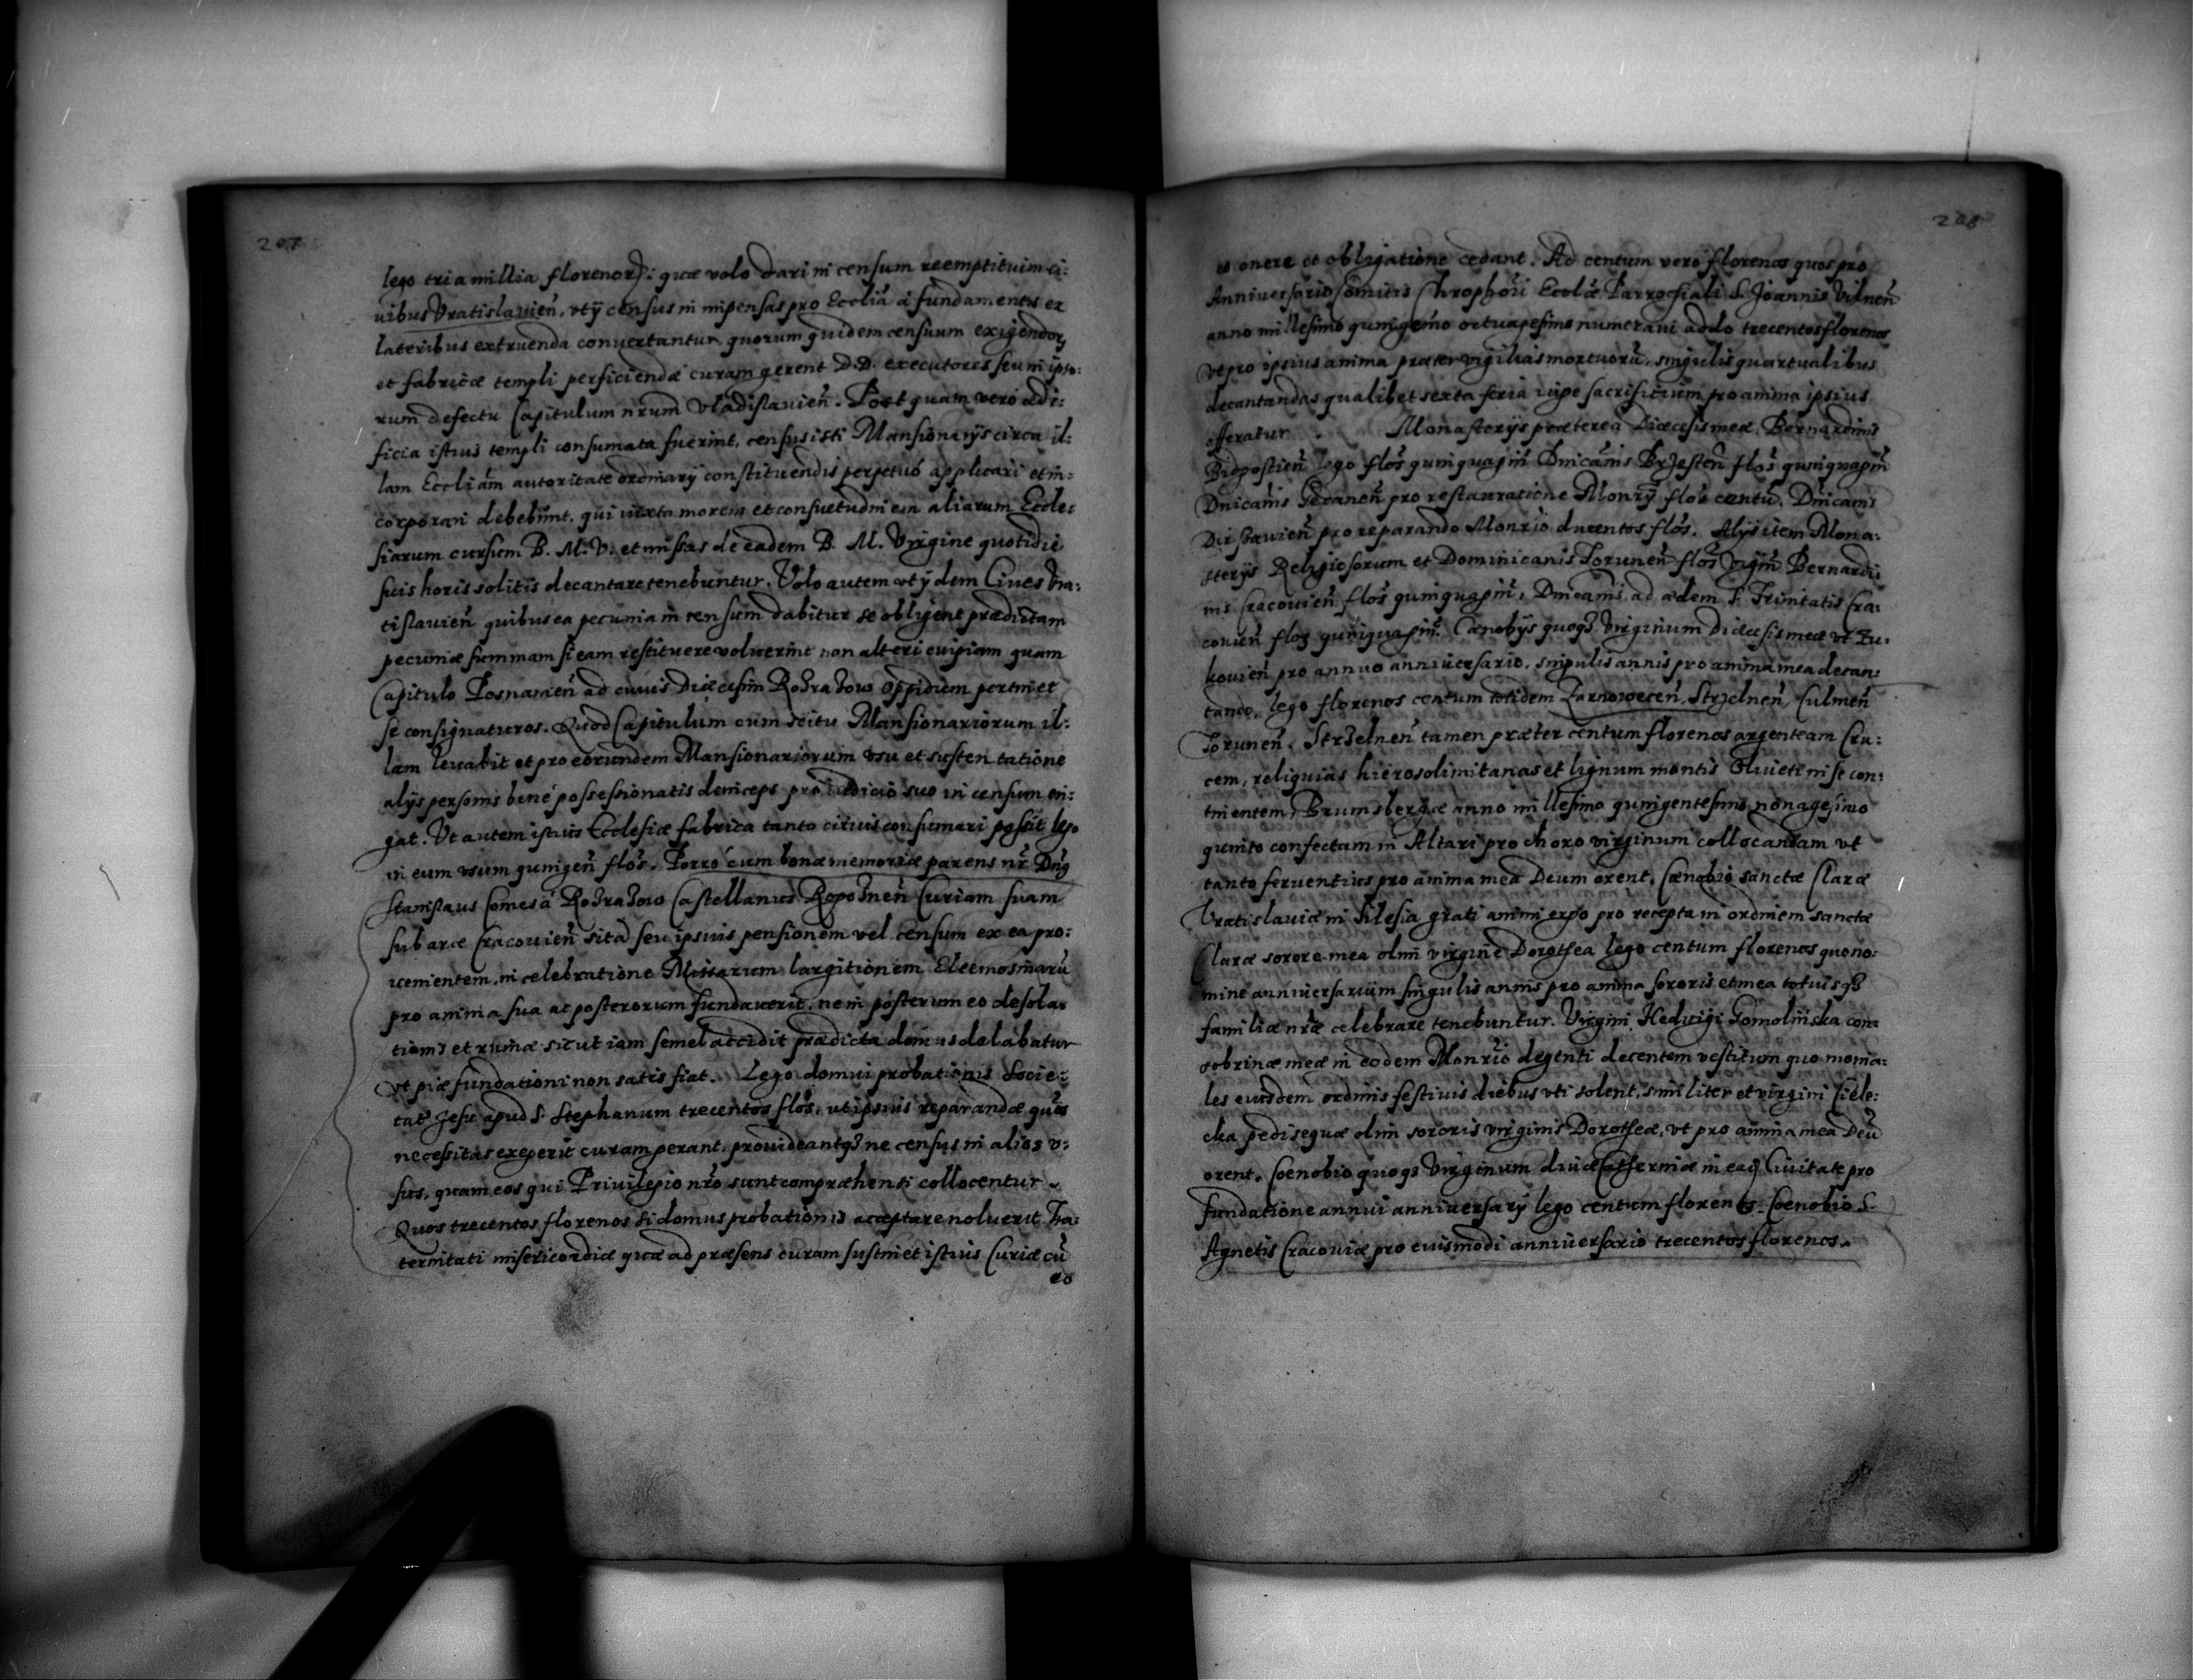 207
lego tria millia florenor: quæ volo dari in censum reemptitium ci:
uibus Vratislauien̄, vt ij census in impensas pro Eccliā à fundamentis ex
lateribus extruenda conuertantur, quorum quidem censuum exigendor
et fabricæ templi perficiendæ curam gerent D.D. executores seu in ipso:
rum defectu Capitulum nrūm Vladislauien̄. Post quam verò ædi:
ficia istius templi consumata fuerint, census isti Mansionarijs circa il:
lam Eccliām autoritate ordinarij constituendis perpetuò applicari et in:
corporari debebunt, qui iuxta morem et consuetudinem aliarum Eccle:
siarum cursum B. M. V. et missas de eadem B. M. Virgine quotidie
suis horis solitis decantare tenebuntur. Volo autem vt ijdem Ciues Vra:
tislauien̄ quibus ea pecunia in censum dabitur se obligent prædictam
pecuniæ summam si eam restituere voluerint non alteri cuipiam quam
Capitulo Posnanien̄ ad cuius Diæcesim Rozrazow oppidum pertinet
se consignaturos. Quod Capitulum cum scitu Mansionariorum il:
lam leuabit et pro eorundem Mansionariorum vsu et sustentatione
alijs personis bene possessionatis deinceps pro iudicio suo in censum eri:
gat. Vt autem istius Ecclesiæ fabrica tanto citius consumari possit lego
in eum vsum quingen̄ flos̄. Porrò cum bonæ memoriæ parens nr̄ Dn̄s
Stanislaus Comes à Rozrazow Castellanus Rogoznen̄ Curiam suam
sub arce Cracouien̄ sitā seu ipsius pensionem vel censum ex ea pro:
uenientem, in celebratione Missarum largitionem Eleemosinarū
pro anima sua ac posterorum fundauerit, ne in posterum eo desola:
tionis et ruinæ sicut iam semel accidit prædicta domus delabatur
vt piæ fundationi non satis fiat. Lego domui probationis Socie:
tatis Jesu apud S. Stephanum trecentos flos̄, ut ipsius reparandæ quos
necessitas exegerit curam gerant, prouideantq̨ ne census in alios v:
sus, quam eos qui Priuilegio nrō sunt compræhensi collocentur.
Quos trecentos florenos si domus probationis acceptare noluerit Fra:
ternitati misericordiæ quæ ad præsens curam sustinet istius Curiæ cū
eo
208
eo onere et obligatione cedant. Ad centum verò florenos quos pro
Anniuersario Comitis Chrophōri Ecclæ Parrochiali S. Joannis Vilnen̄
anno millesimo quingemo octuagesimo numeraui addo trecentos florenos
vt pro ipsius anima præter vigilias mortuorū, singulis quartualibus
decantandas qualibet sexta feria iuge sacrificium pro anima ipsius
offeratur. Monasterijs præterea Diæcesis meæ, Bernardinis
Bidgostien̄ lego flos̄ quinquagin̄ Dnicanis Brzesten̄ flos̄ quinquagin̄
Dnicanis Gedanen̄ pro restauratione Monrij flos̄ centū, Dnicanis
Dirsauien̄ pro reparando Monrio ducentos flos̄. Alijs item Mona:
sterijs Religiosorum et Dominicanis Torunen̄ flos̄ vigin̄ Bernardi
nis Cracouien̄ flos̄ quinquagin̄, Dnicanis ad ædem S. Trinitatis Cra:
couien̄ flos quinquagin̄. Cænobijs quoq̨ Virginum Diæcesis meæ vt Zu:
kouien̄ pro annuo anniuersario, singulis annis pro anima mea decan:
tando, lego florenos centum totidem Zarnowecen̄, Strzelnen̄, Culmen̄
Torunen̄. Strzelnen̄ tamen præter centum florenos argenteam Cru:
cem, reliquias hierosolimitanas et lignum montis Oliueti in se con:
tinentem, Brunsbergæ anno millesimo quingentesimo nonagesimo
quinto confectam in Altari pro choro virginum collocandam vt
tanto feruentius pro anima mea Deum orent. Cænobio sanctæ Claræ
Vratislauiæ in Silesia grati animi ergo pro recepta in ordinem sanctæ
Claræ sorore mea olim virgine Dorothea lego centum florenos quo no:
mine anniuersarium singulis annis pro anima sororis et mea totiusq̨
familiæ nræ celebrare tenebuntur. Virgini Heduigi Gomolinska con:
sobrinæ meæ in eodem Monrio degenti decentem vestitum quo monia:
les eiusdem ordinis festiuis diebus vti solent, similiter et virgini Ciele:
cka pedisequæ olim sororis virginis Dorotheæ, vt pro anima mea Deū
orent. Coenobio quoq̨ Virginum diuæ Catherinæ in ead Ciuitate pro
fundatione annui anniuersarij lego centum florenos. Coenobio S.
Agnetis Cracouiæ pro eiusmodi anniuersario trecentos florenos.